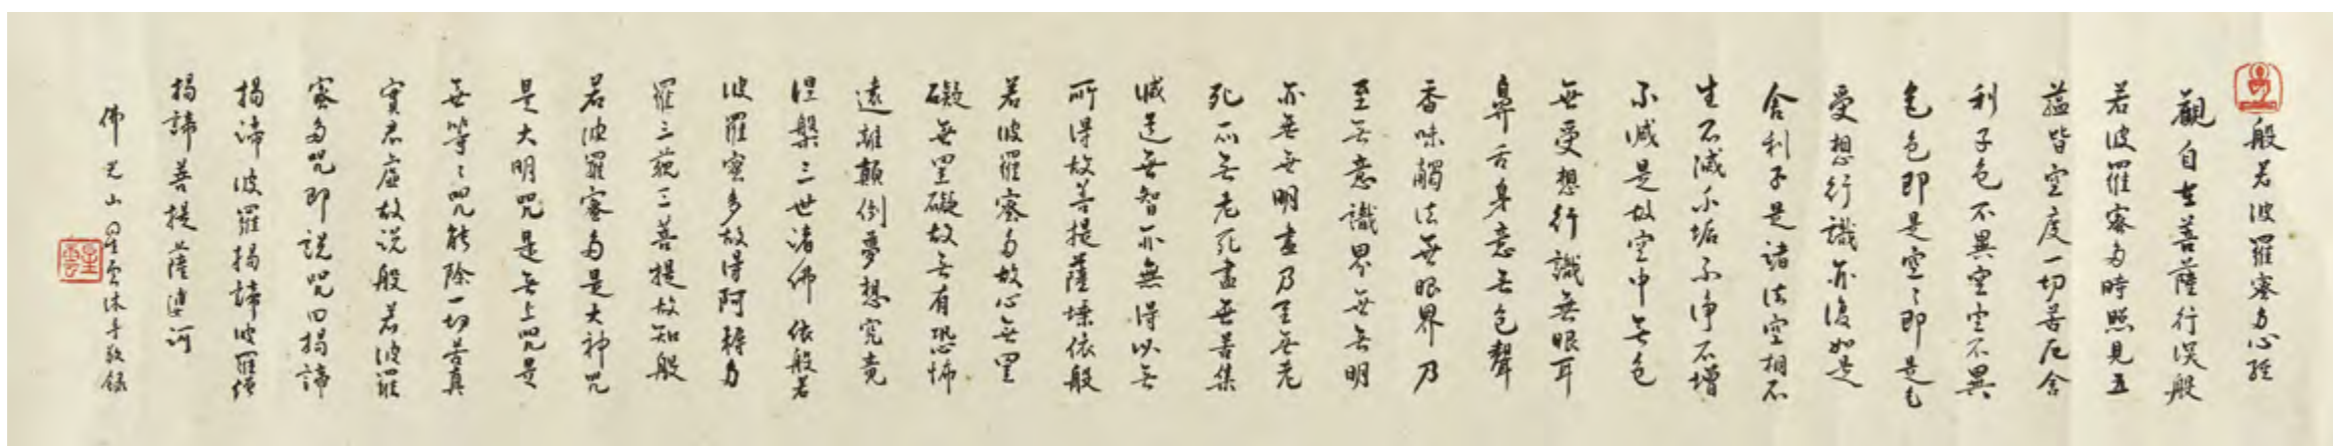 般若波羅蜜多心經
觀自在菩薩行深般
若波羅蜜多時照見五
蘊皆空度一切苦厄舍
利子色不異空空不異
色色即是空〻即是色
受想行識亦復如是
舍利子是諸法空相不
生不滅不垢不淨不增
不減是故空中無色
無受想行識無眼耳
鼻舌身意無色聲
香味觸法無眼界乃
至無意識界無無明
亦無無明盡乃至無老
死亦無老死盡無苦集
滅道無智亦無得以無
所得故菩提薩埵依般
若波羅蜜多故心無罣
礙無罣礙故無有恐怖
遠離顛倒夢想究竟
涅槃三世諸佛依般若
波羅蜜多故得阿耨多
羅三藐三菩提故知般
若波羅蜜多是大神咒
是大明咒是無上咒是
無等〻咒能除一切苦真
實不虛故說般若波羅
蜜多咒即說咒曰揭諦
揭諦波羅揭諦波羅僧
揭諦菩提薩婆訶
佛光山星雲沐手敬錄
星雲